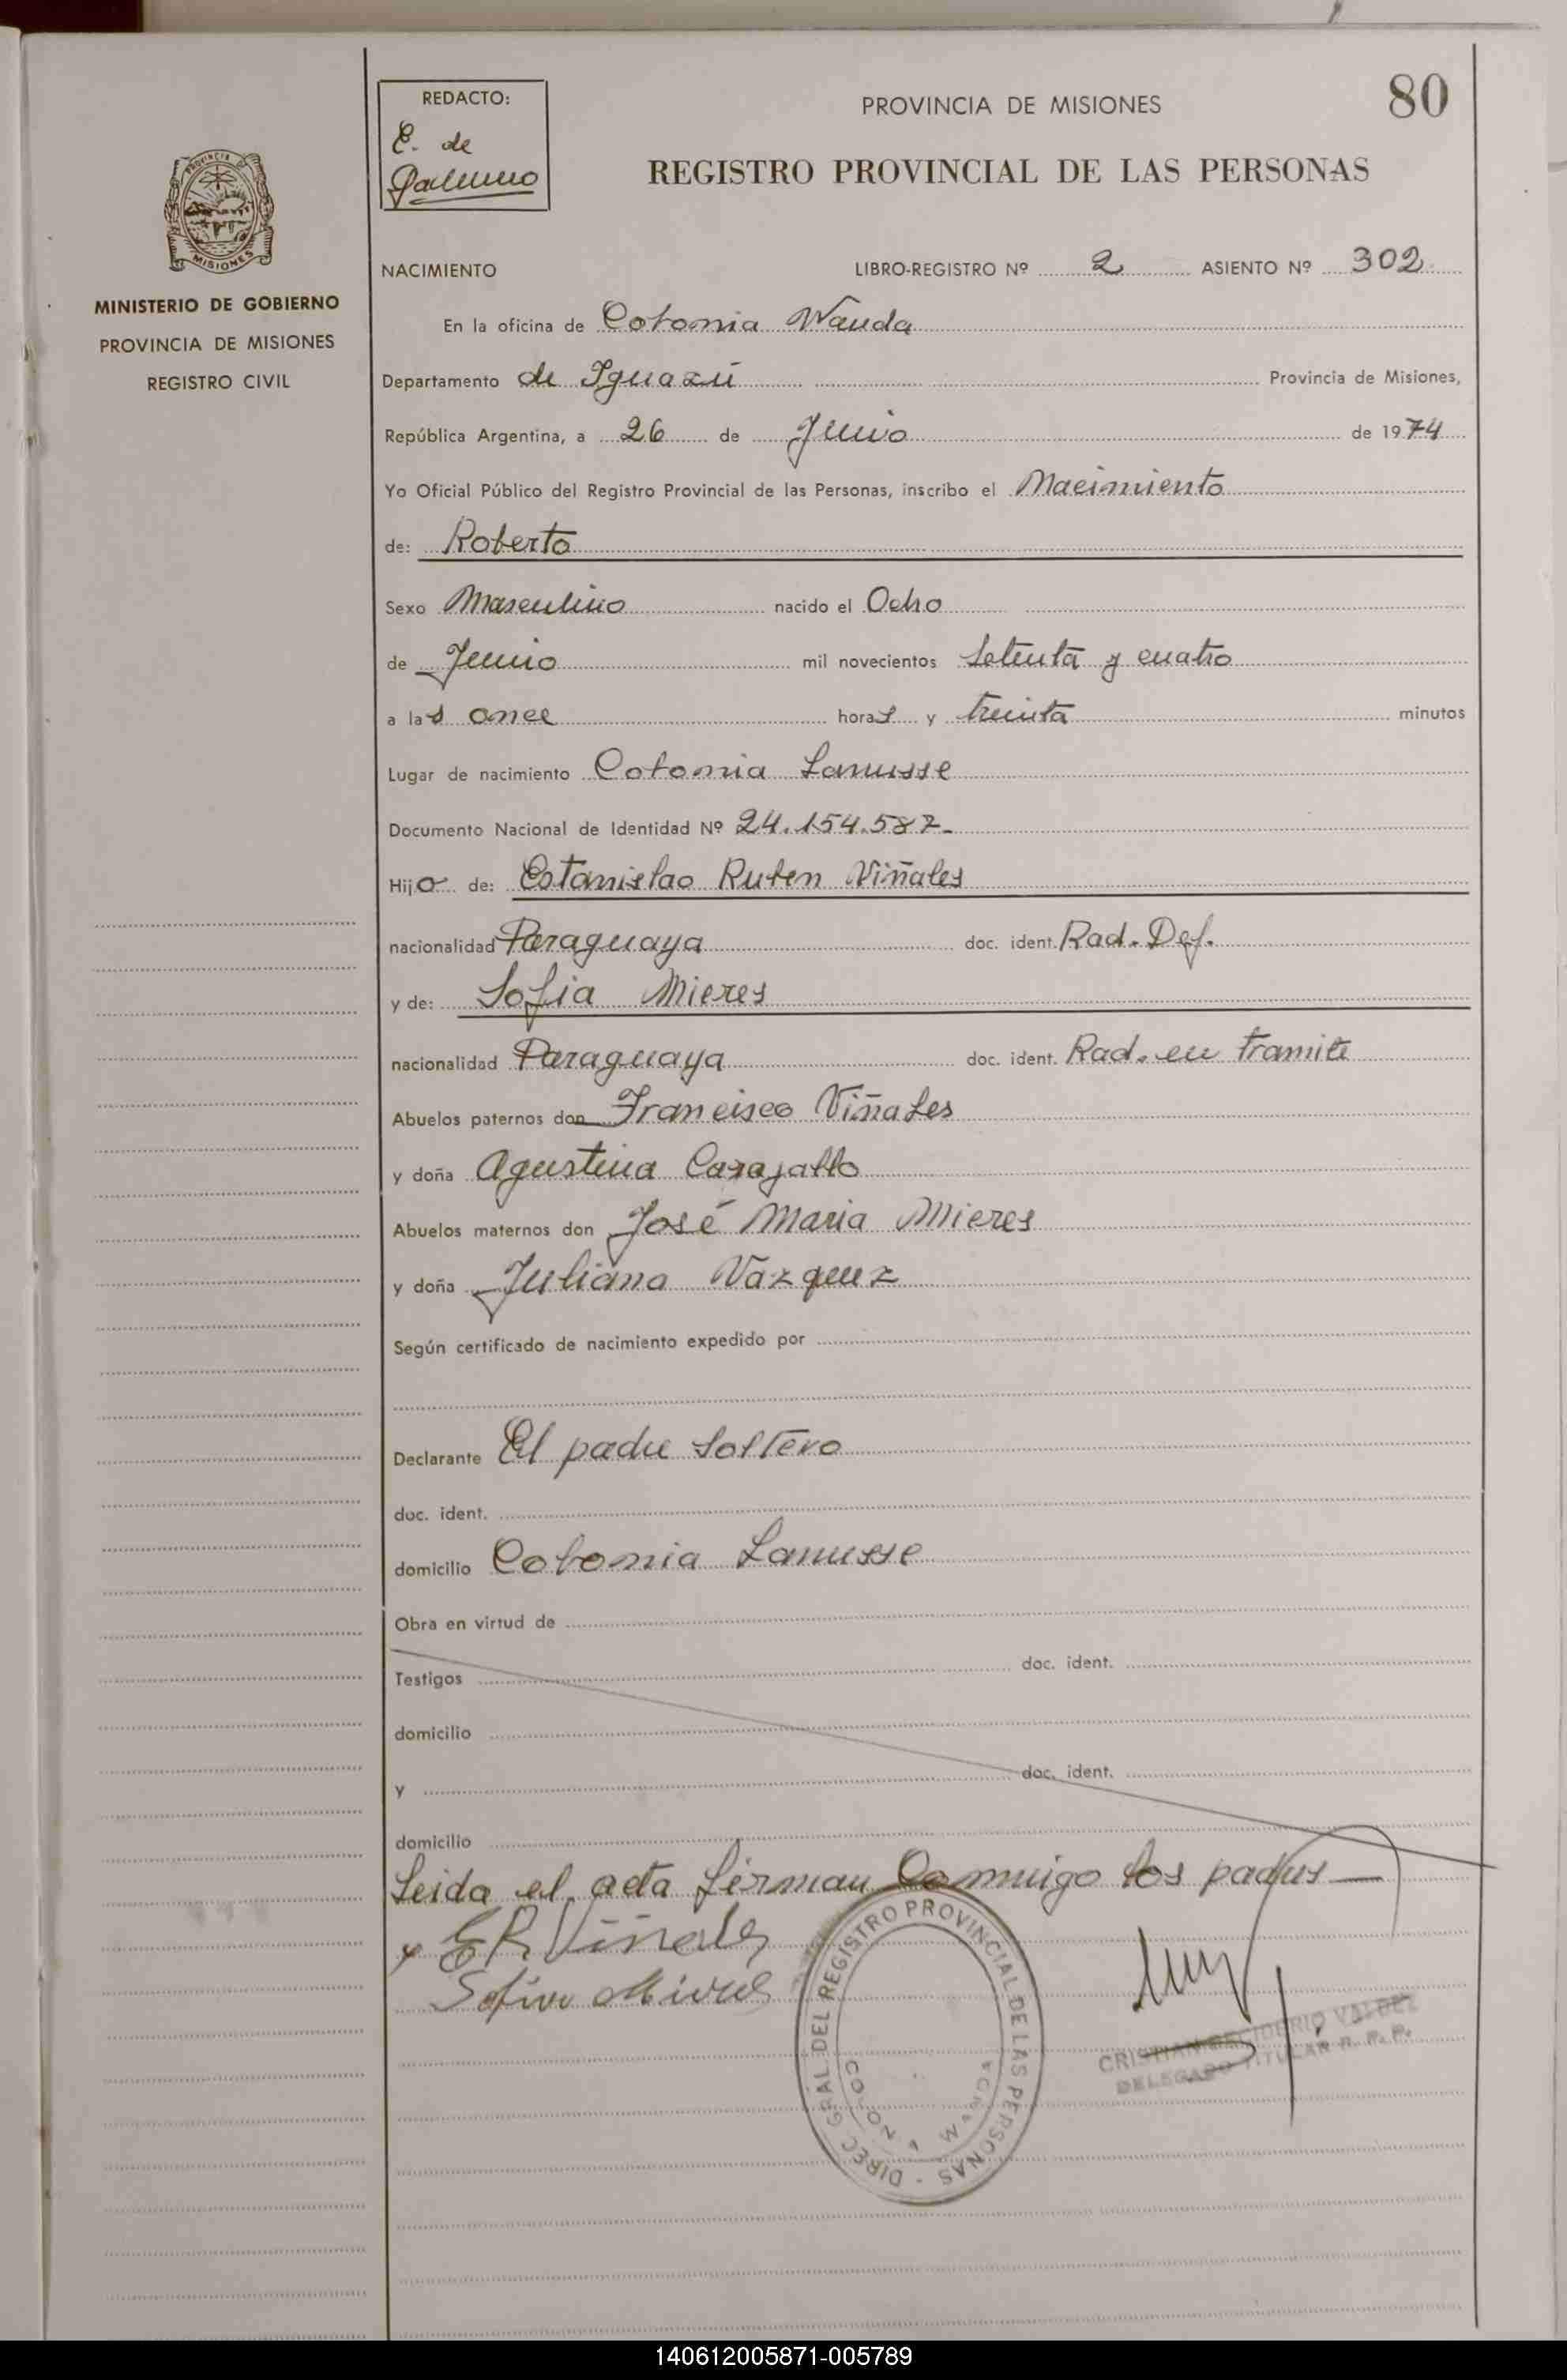 80
REDACTO:
E. de
PROVINCIA DE MISIONES
REGISTRO PROVINCIAL DE LAS PERSONAS
PROVINCIA D
MISIONES
MINISTERIO DE GOBIERNO
PROVINCIA DE MISIONES
REGISTRO CIVIL
NACIMIENTO LIBRO-REGISTRO Nº 2 ASIENTO Nº 302
En la oficina de Colonia Wanda
Departamento de Iguazú Provincia de Misiones,
República Argentina, a 26 de Junio de 1974
Yo Oficial Público del Registro Provincial de las Personas, inscribo el Nacimiento
de: Roberto
Sexo Masculino nacido el Ocho
de Junio mil novecientos Setenta y cuatro
a las once horas y treinta minutos
Lugar de nacimiento Colonia Lanusse
Documento Nacional de Identidad Nº 24.154.587-
Hijo de: Estanislao Ruben Viñales
nacionalidad Paraguaya doc. ident. Rad. Def.
y de: Sofia Mieres
nacionalidad Paraguaya doc. ident. Rad. en tramite
Abuelos paternos don Francisco Viñales
y doña Agustina
Abuelos maternos don José Maria Mieres
y doña Juliana Vazquez
Según certificado de nacimiento expedido por
Declarante El padre Soltero
doc. ident.
domicilio Colonia Lanusse
Obra en virtud de
Testigos doc. ident.
domicilio
y doc. ident.
domicilio
Leida el acta firman Conmigo los padres —
E R Viñales
Sofia Mieres
DIREC GRAL DEL REGISTRO PROVINCIAL DE LAS PERSONAS -
COLONIA WANDA
CRISTIAN DECIDERIO VALDEZ
DELEGADO TITULAR R. P. P.
140612005871-005789